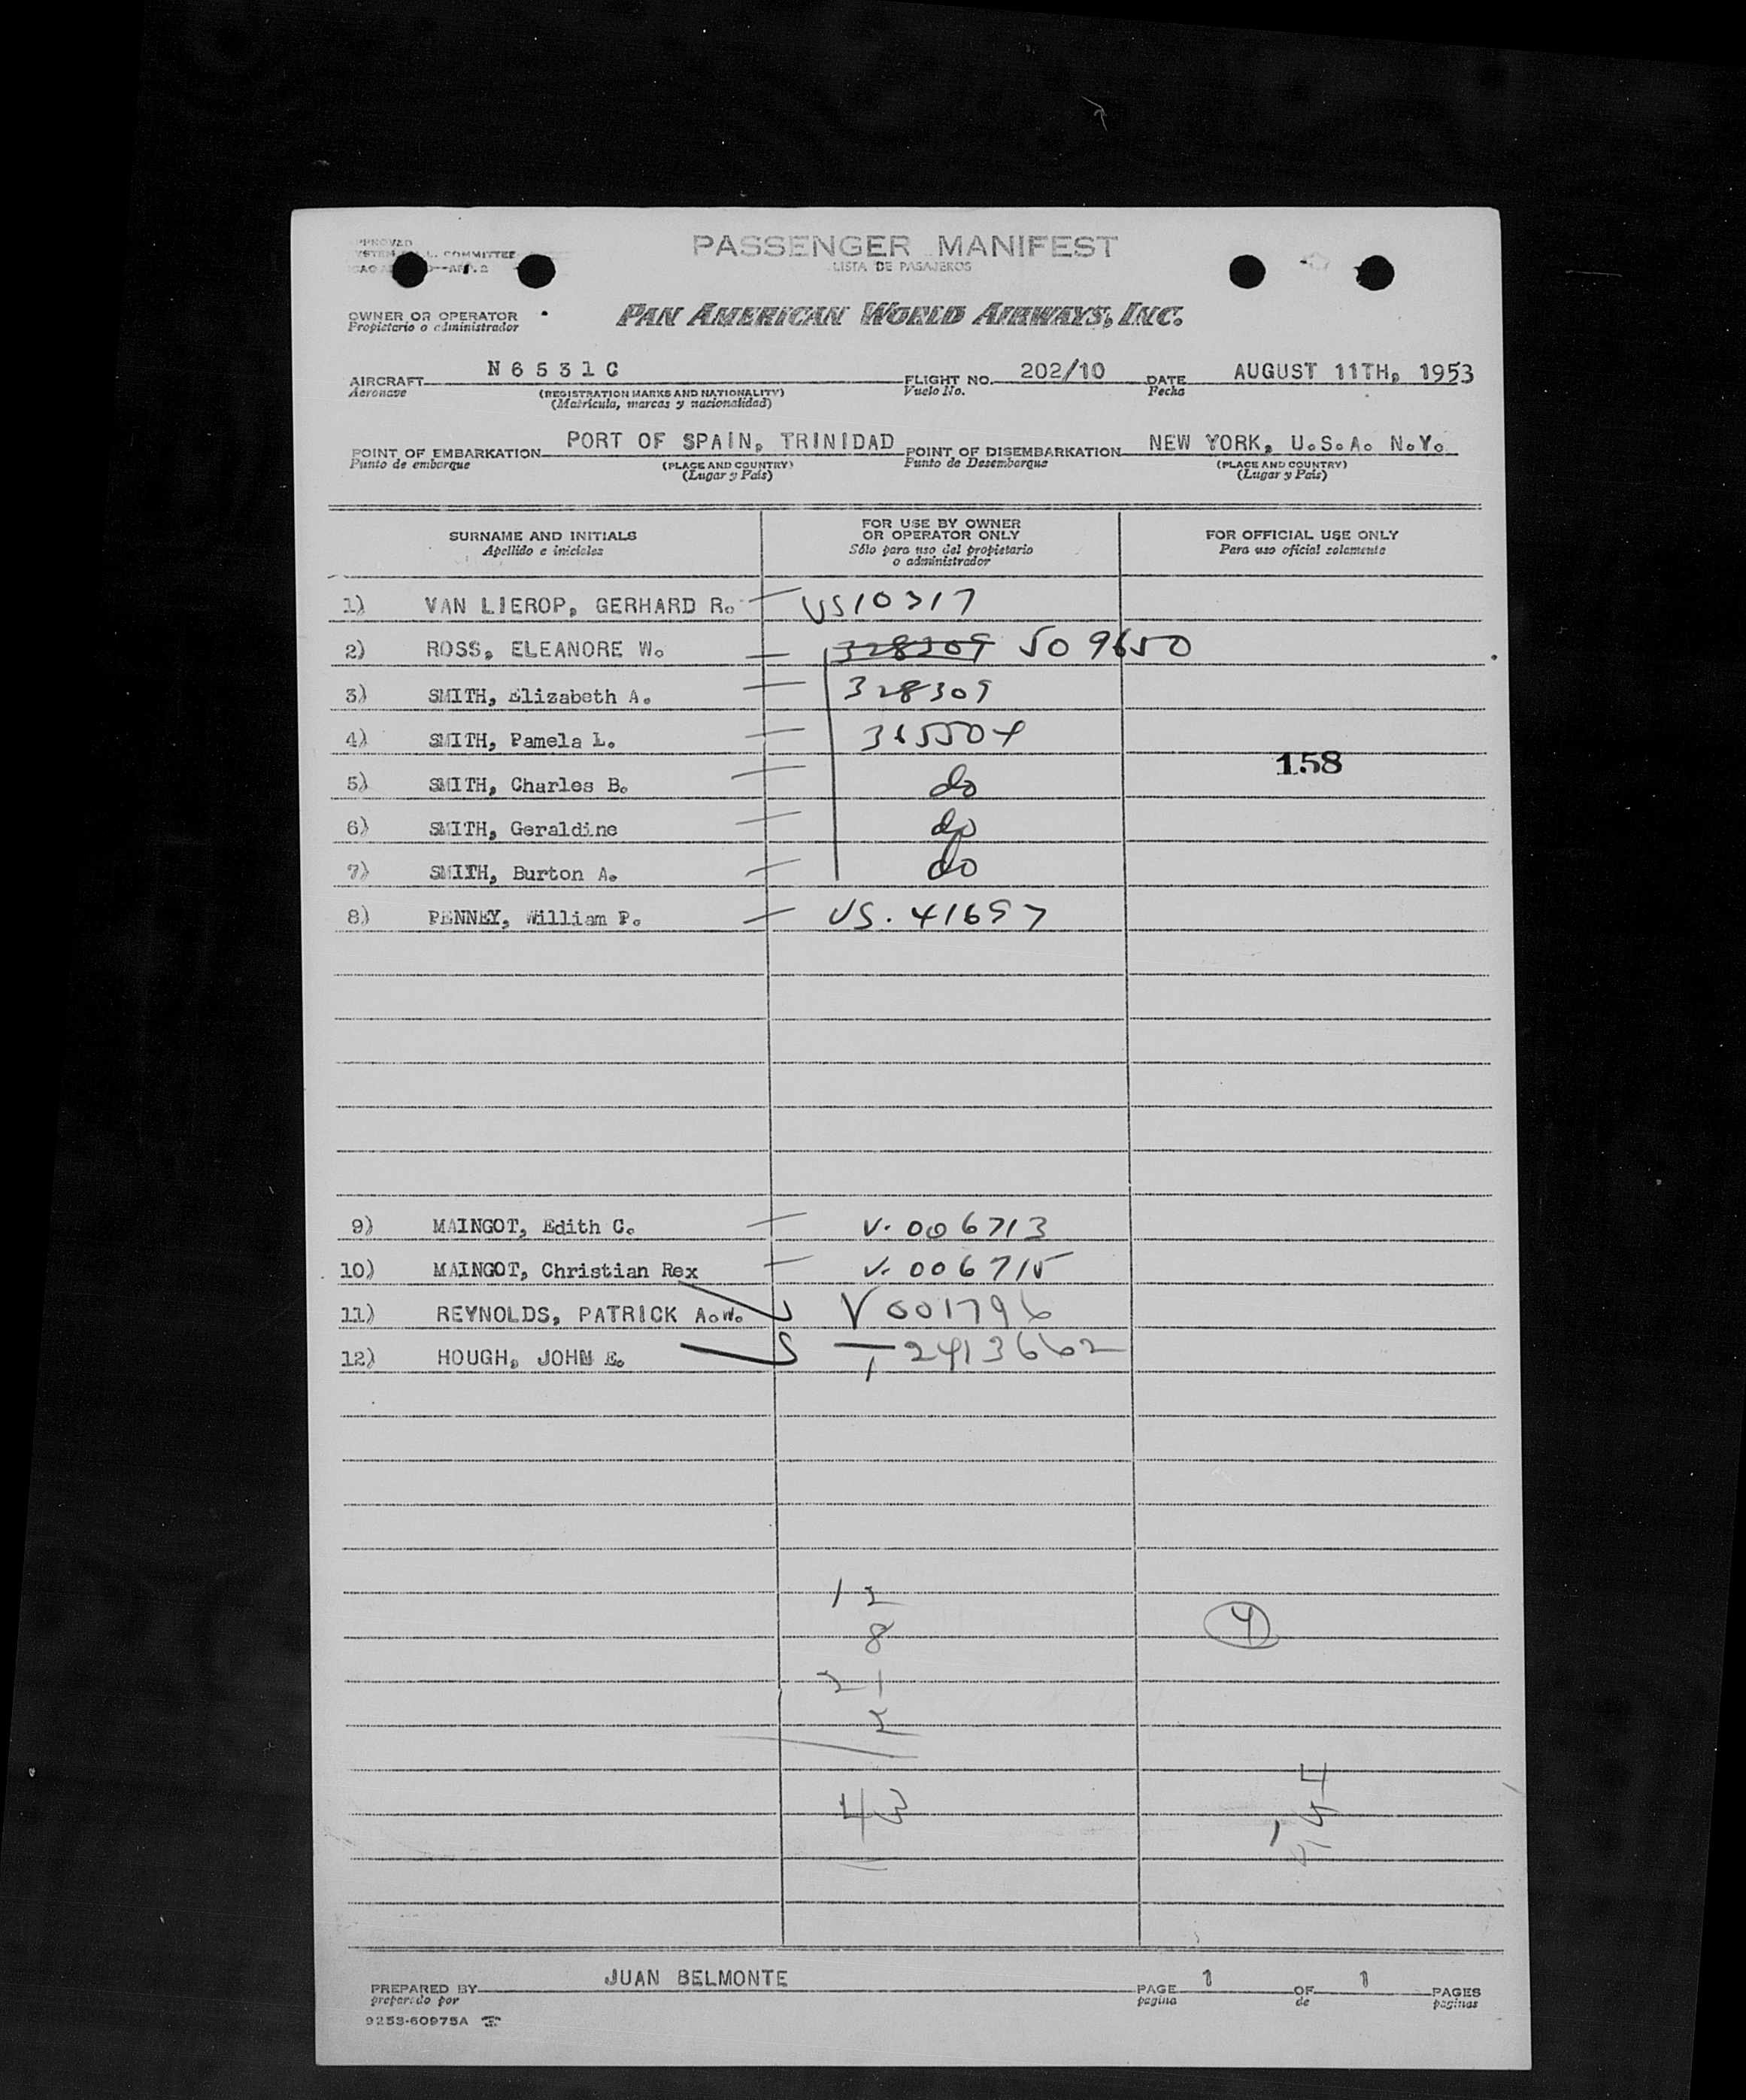 PASSENGER MANIFEST
LISTA DE PASAJEROS
COMMITTEE
OWNER OR OPERATOR
Propietario o administrador
PAN AMERICAN WORLD AIRWAYS, INC.
AIRCRAFT N6531C FLIGHT NO. 202/10 DATE AUGUST 11TH, 1953
Aeronave (REGISTRATION MARKS AND NATIONALITY) Vuelo No. Fecha
(Matrícula, marcas y nacionalidad)
POINT OF EMBARKATION PORT OF SPAIN, TRINIDAD POINT OF DISEMBARKATION NEW YORK, U.S.A. N.Y.
Punto de embarque (PLACE AND COUNTRY) Punto de Desembarque (PLACE AND COUNTRY)
(Lugar y País) (Lugar y País)
SURNAME AND INITIALS
Apellido e iniciales
FOR USE BY OWNER
OR OPERATOR ONLY
Sólo para uso del propietario
o administrador
FOR OFFICIAL USE ONLY
Para uso oficial solamente
1) VAN LIEROP, GERHARD R. US10317
2) ROSS, ELEANORE W. 328309 509650
3) SMITH, Elizabeth A. 328309
4) SMITH, Pamela L.
158
5) SMITH, Charles B. do
6) SMITH, Geraldine do
7) SMITH, Burton A. do
8) PENNEY, William P. US. 41697
9) MAINGOT, Edith C. V. 006713
10) MAINGOT, Christian Rex V. 006715
11) REYNOLDS, PATRICK A.W. V 001796
12) HOUGH, JOHN E. 2413662
12
8
4
21
2
43
4
PREPARED BY JUAN BELMONTE PAGE 1 OF 1 PAGES
preparado por pagina de paginas
9253-60975A